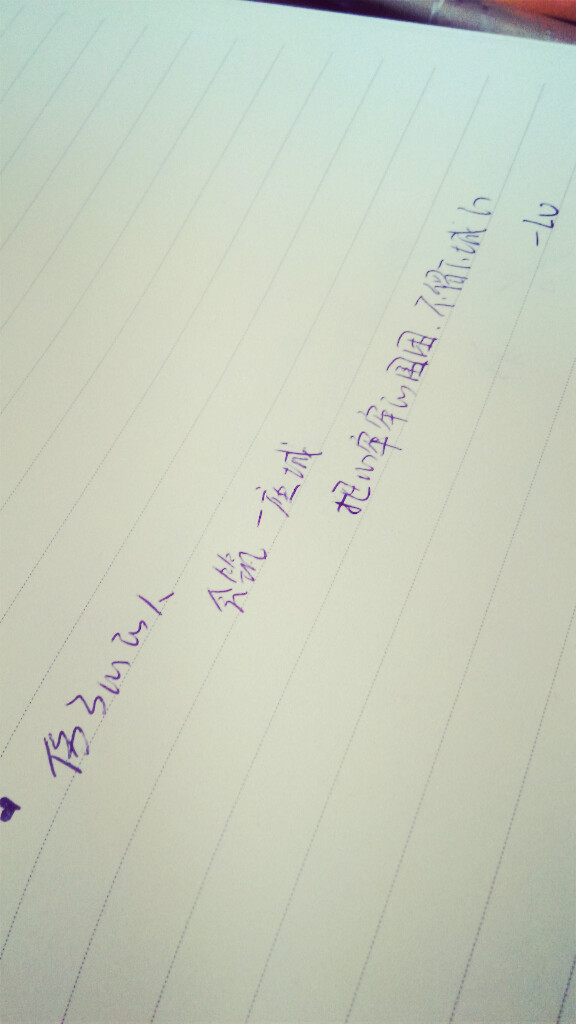 伤了心的人
会筑一座城
把心牢牢的围困.不留下城门
-LU